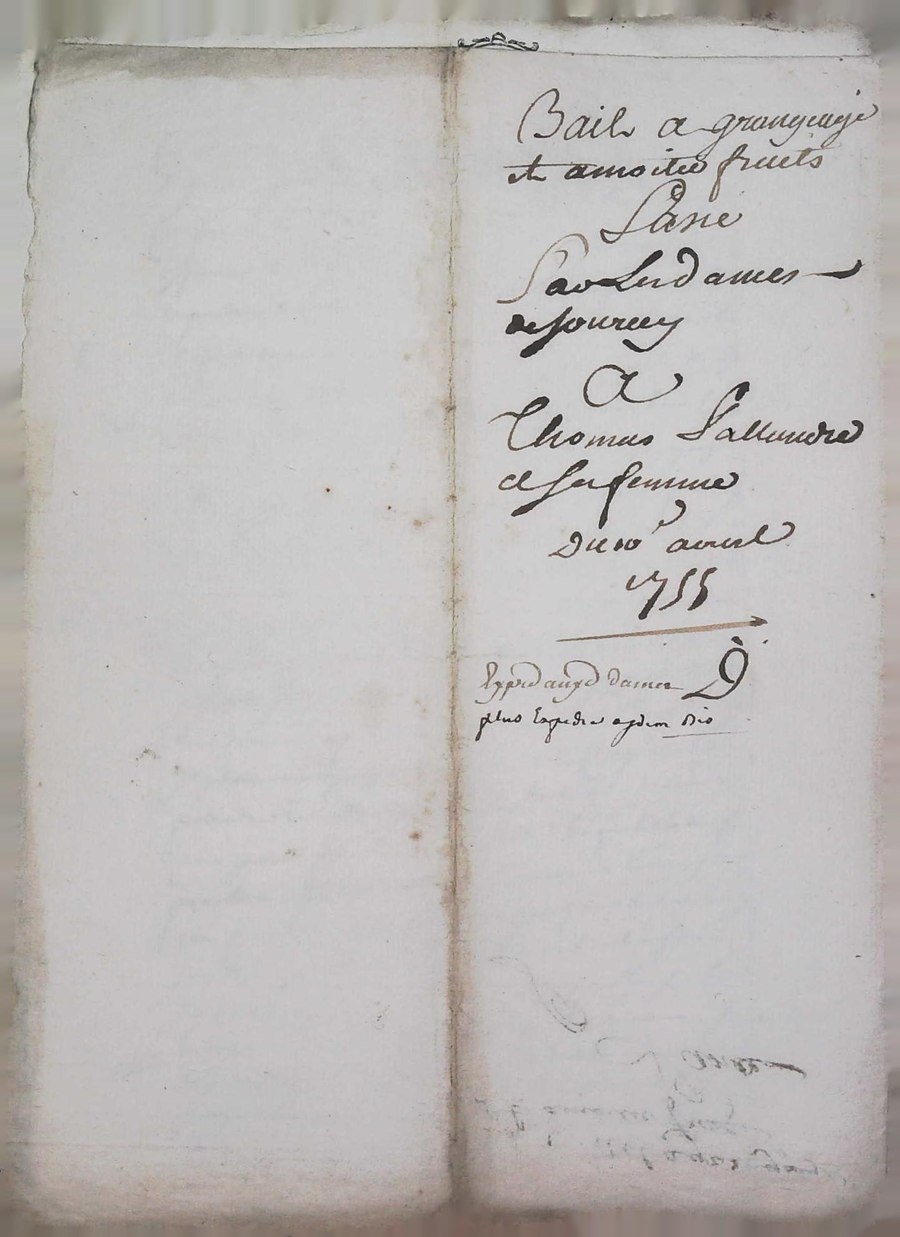 Bail a grangeage
et a moitié fruits
Passé
Par Les dames
de Jourcey
A
Thomas Pallandre
et Sa femme
Du 10e avril
1755
Exped aux d dames
plus Expedie